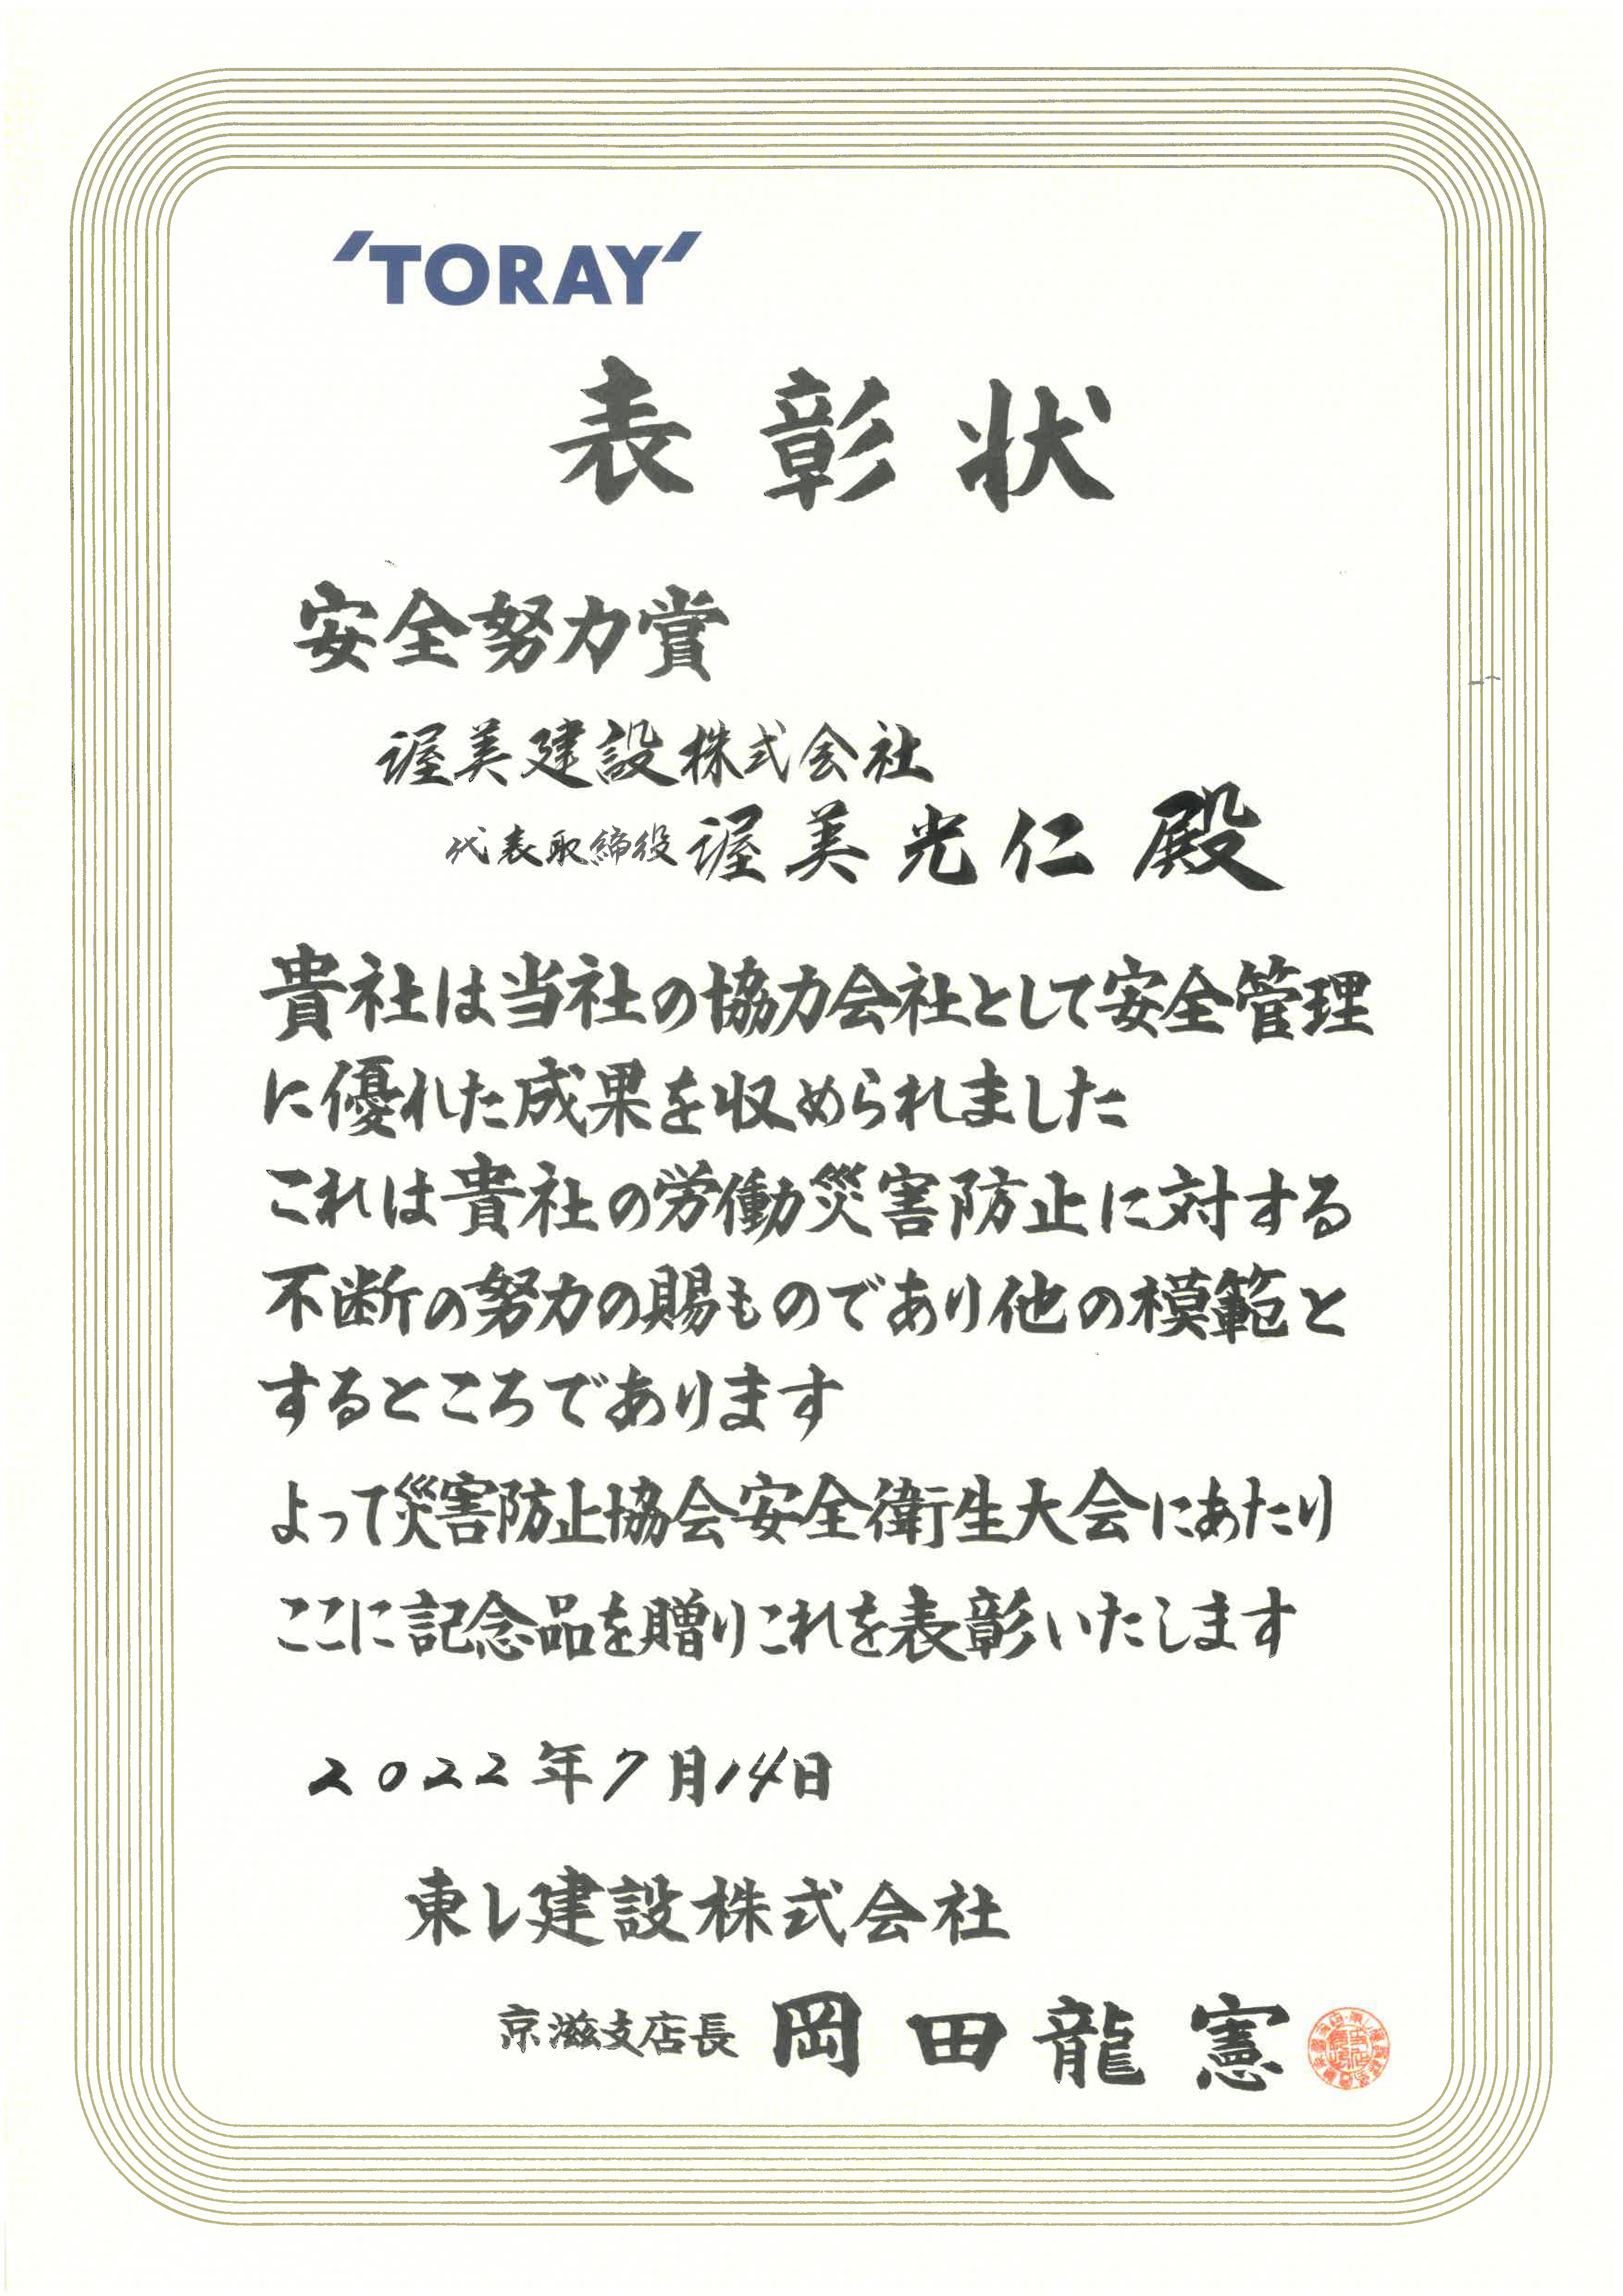 'TORAY'
表彰状
安全努力賞
渥美建設株式会社
代表取締役 渥美光仁 殿
貴社は当社の協力会社として安全管理
に優れた成果を収められました
これは貴社の労働災害防止に対する
不断の努力の賜ものであり他の模範と
するところであります
よって災害防止協会安全衛生大会にあたり
ここに記念品を贈りこれを表彰いたします
2022年7月14日
東レ建設株式会社
京滋支店長 岡田龍憲